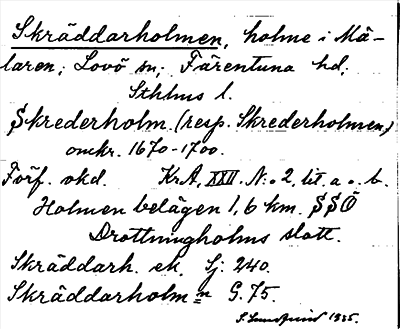 Skräddarholmen, holme i Mä-
laren; Lovö sn; Färentuna hd;
Sthlms l.
Skrederholm (resp. Skrederholmen)
omkr. 1670-1700.
Förf. okd. KrA, XXII. N:o 2, lit. a o. b.
Holmen belägen 1,6 km. SSÖ
Drottningholms slott.
Skräddarh. ek. Sj: 240.
Skräddarholmen G. 75.
1935.